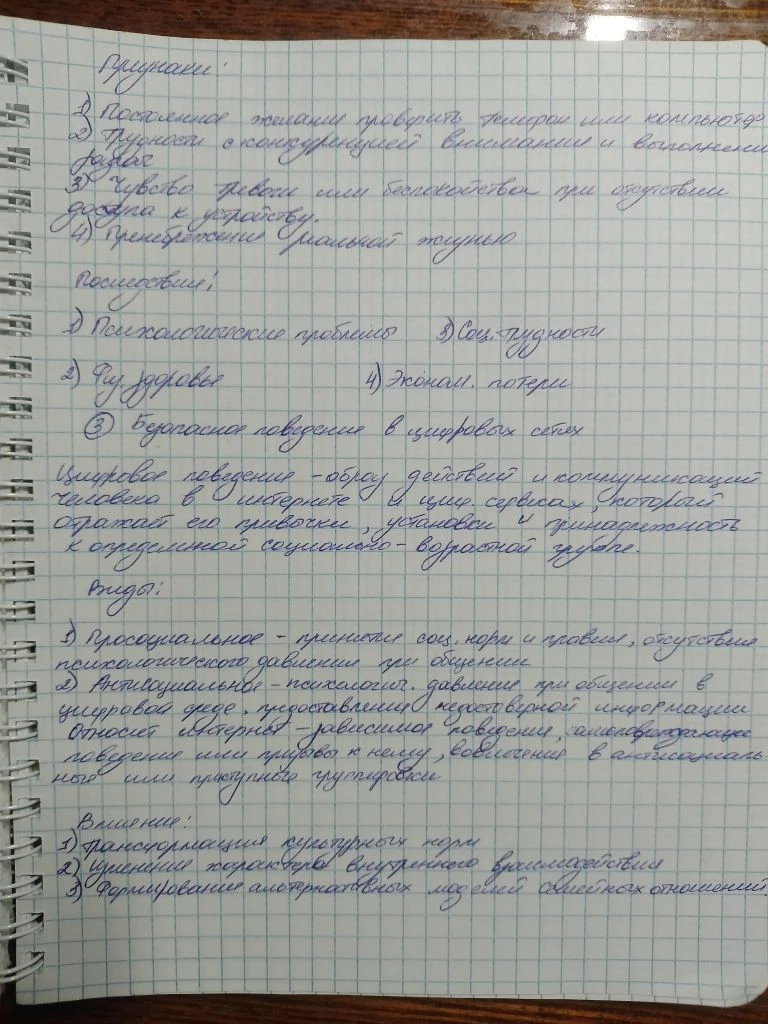 Признаки:
1) Постоянное желание проверить телефон или компьютер
2) Трудности с конкуренцией внимания и выполнении
задач
3) Чувство тревоги или беспокойства при отсутствии
доступа к устройству.
4) Пренебрежение реальной жизнью
Последствия:
1) Психологические проблемы 3) Соц. трудности
2) Физ. здоровье 4) Эконом. потери
3 Безопасное поведение в цифровых сетях
Цифровое поведение - образ действий и коммуникаций
человека в интернете и циф. сервисах, который
отражает его привычки, установки и принадлежность
к определенной социально-возрастной группе.
Виды:
1) Просоциальное - принятие соц. норм и правил, отсутствие
психологического давления при общении
2) Антисоциальное - психологич. давление при общении в
цифровой среде, предоставление недостоверной информации
относит интернет-зависимое поведение, самоповреждающее
поведение или призывы к нему, вовлечение в антисоциаль-
ные или преступные группировки
Влияние:
1) трансформация культурных норм
2) изменение характера внутреннего взаимодействия
3) Формирование альтернативных моделей семейных отношений.